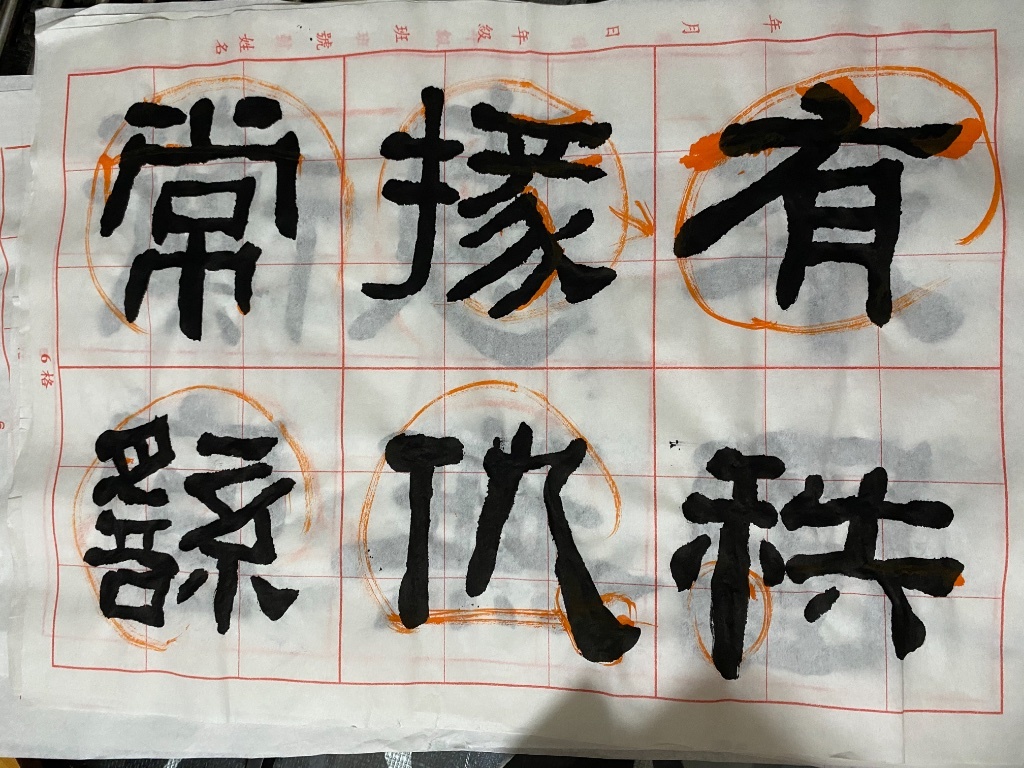 年　月　日　年級　班　號　姓名
有秩
掾仇
常繇
6格